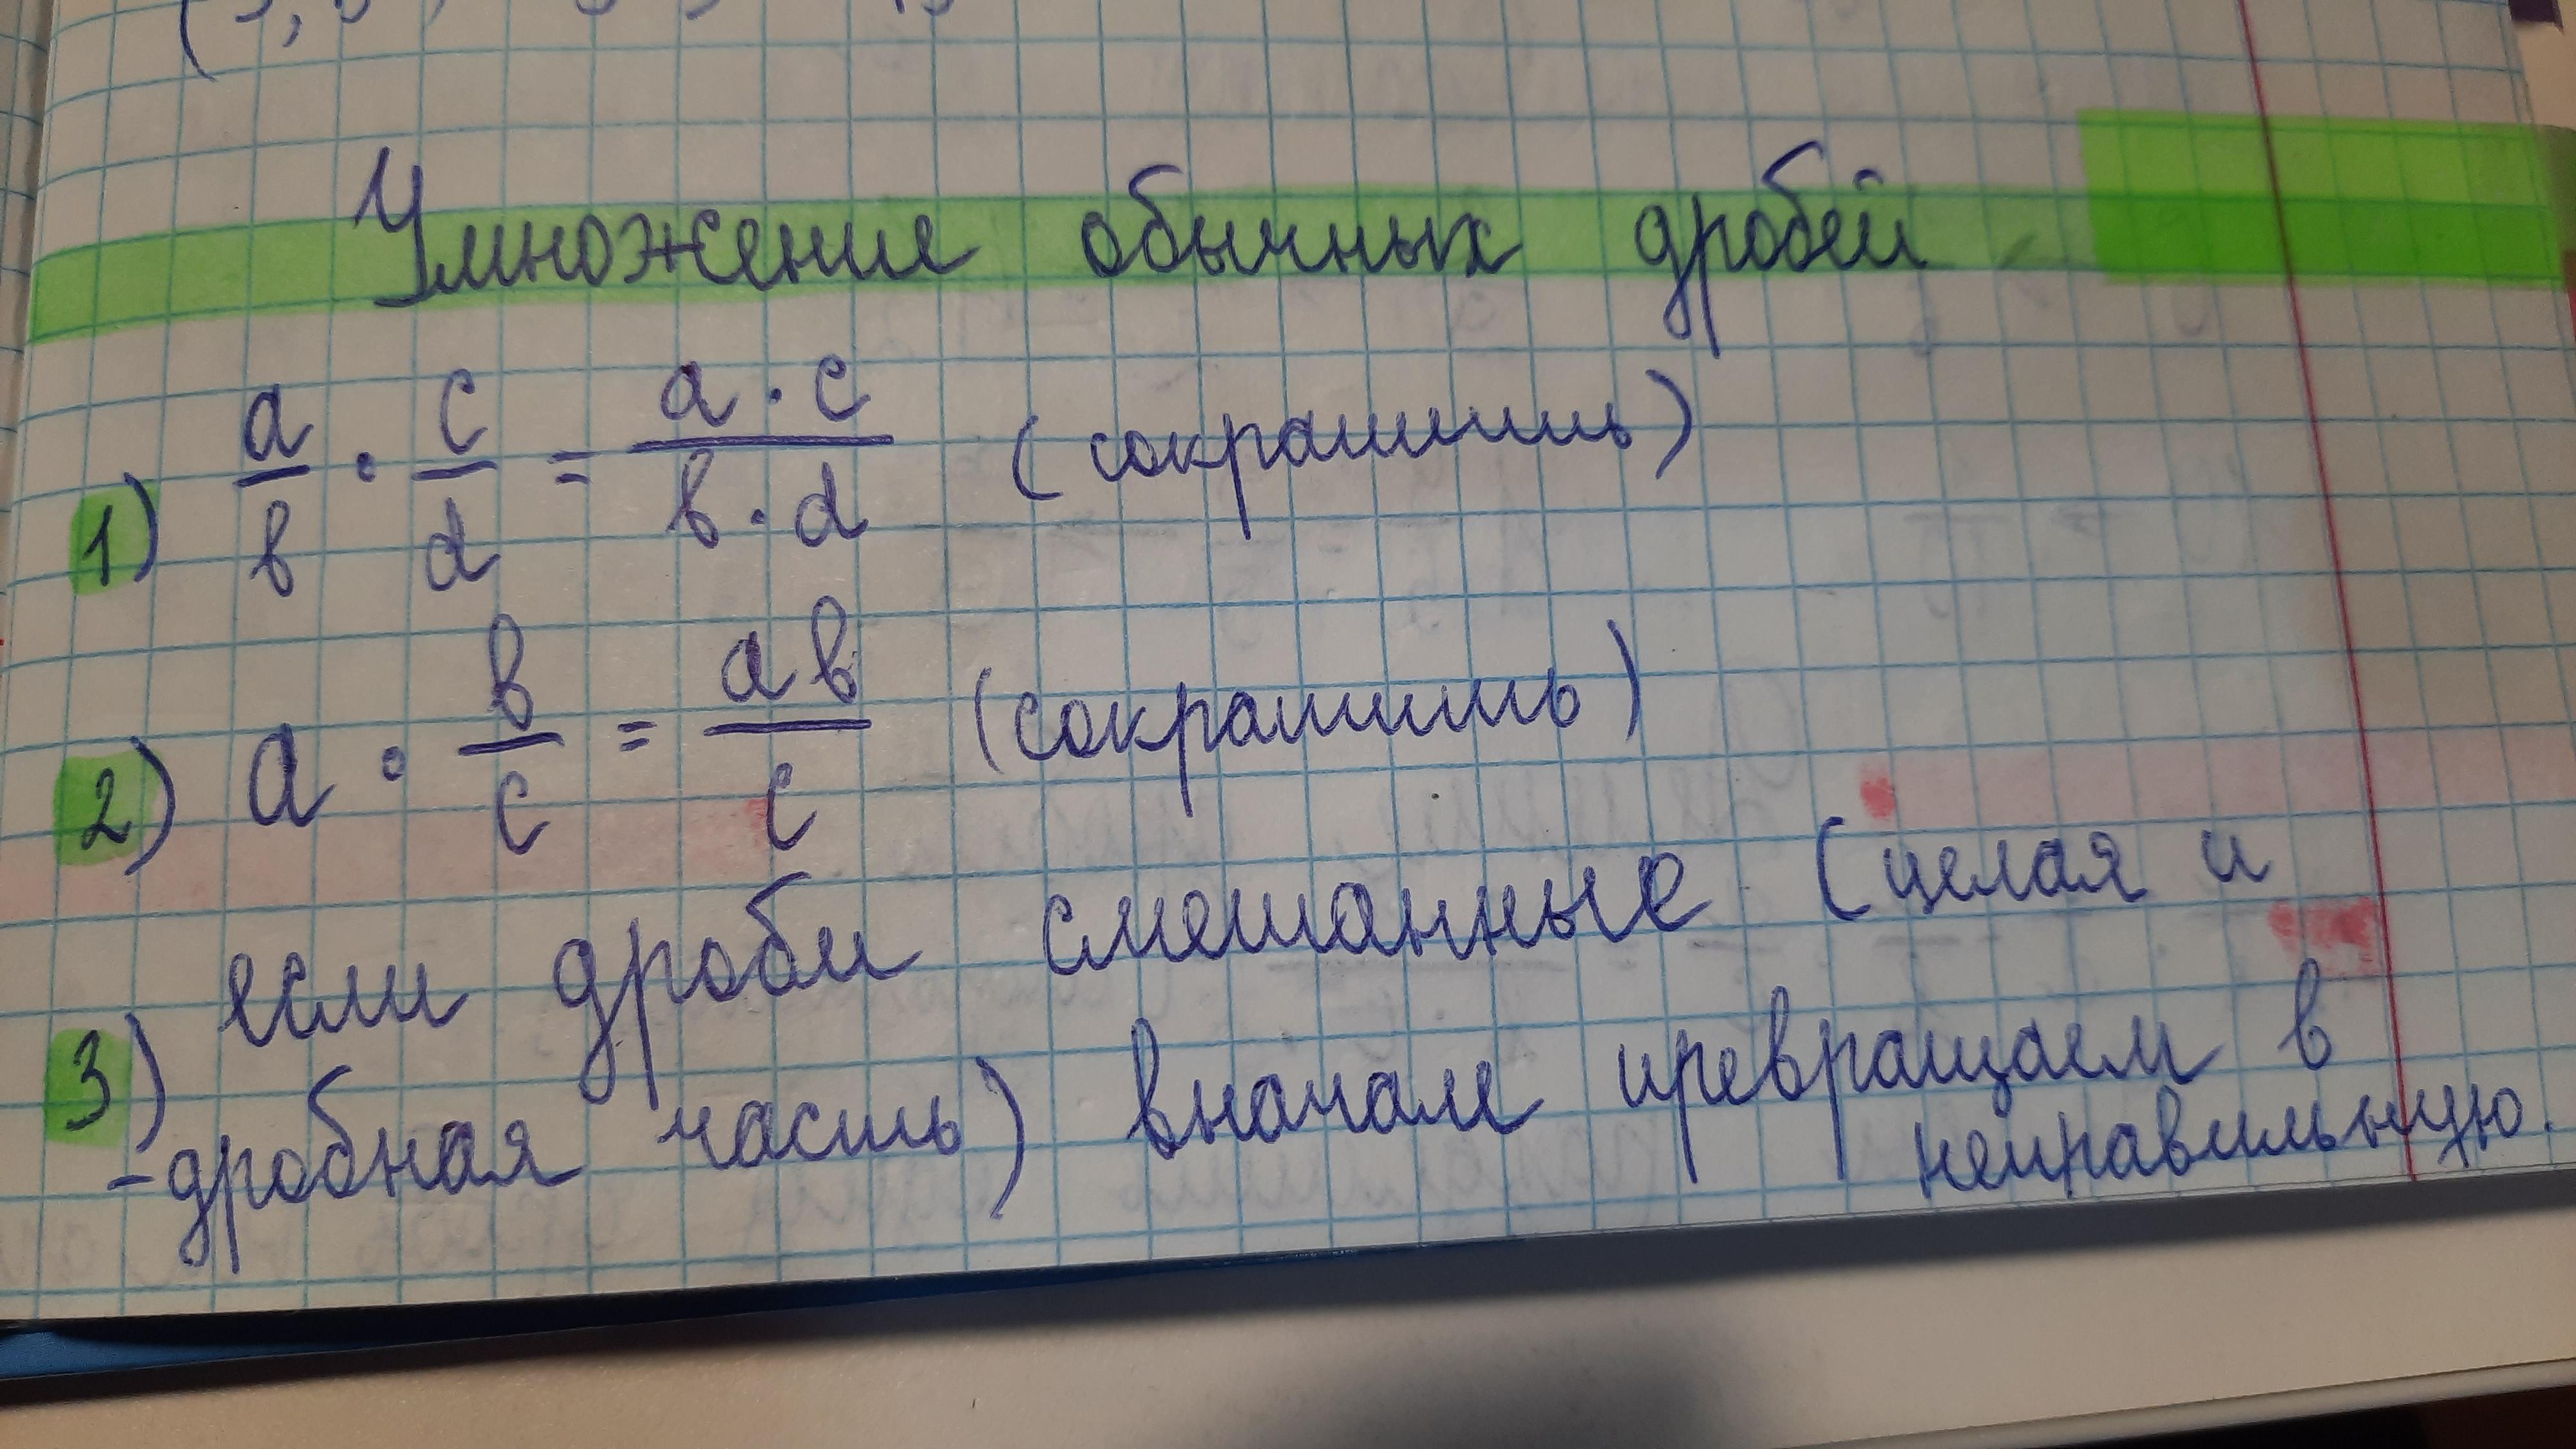 Умножение обычных дробей
1) a/b · c/d = a · c / b · d (сократить)
2) a · b/c = ab/c (сократить)
3) если дроби смешанные (целая и
-дробная часть) вначале превращаем в
неправильную.